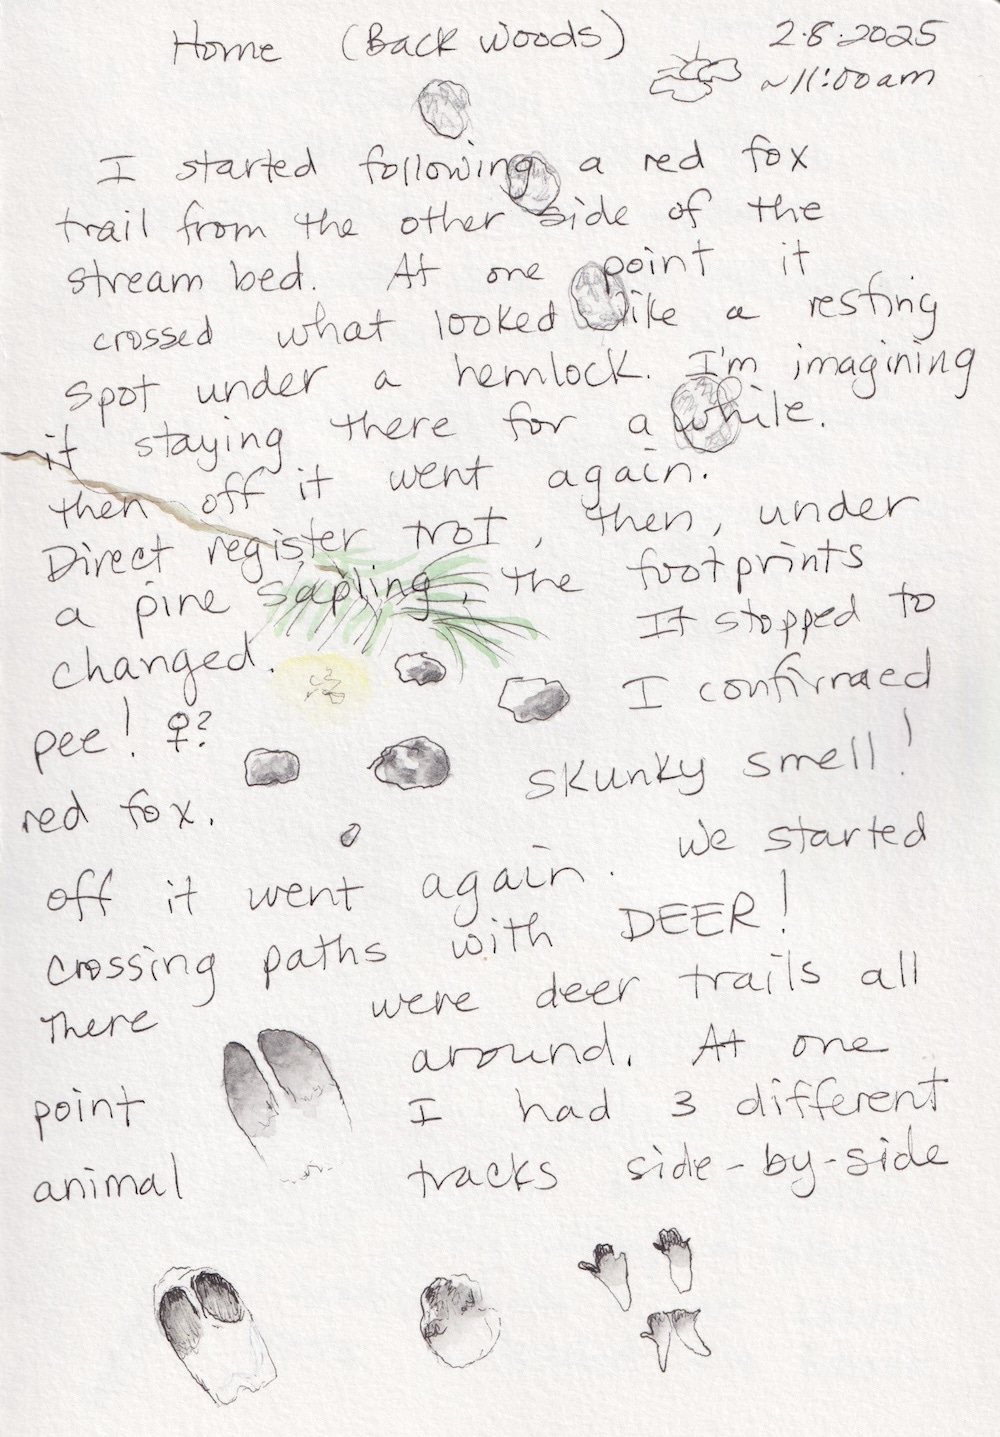 Home (Back Woods) 2.8.2025
~11:00am
I started following a red fox
trail from the other side of the
stream bed. At one point it
crossed what looked like a resting
spot under a hemlock. I'm imagining
it staying there for a while.
then off it went again.
Direct register trot, then, under
a pine sapling, the footprints
changed. It stopped to
pee! ♀? I confirmed
red fox. skunky smell!
off it went again. We started
crossing paths with DEER!
There were deer trails all
around. At one
point I had 3 different
animal tracks side-by-side